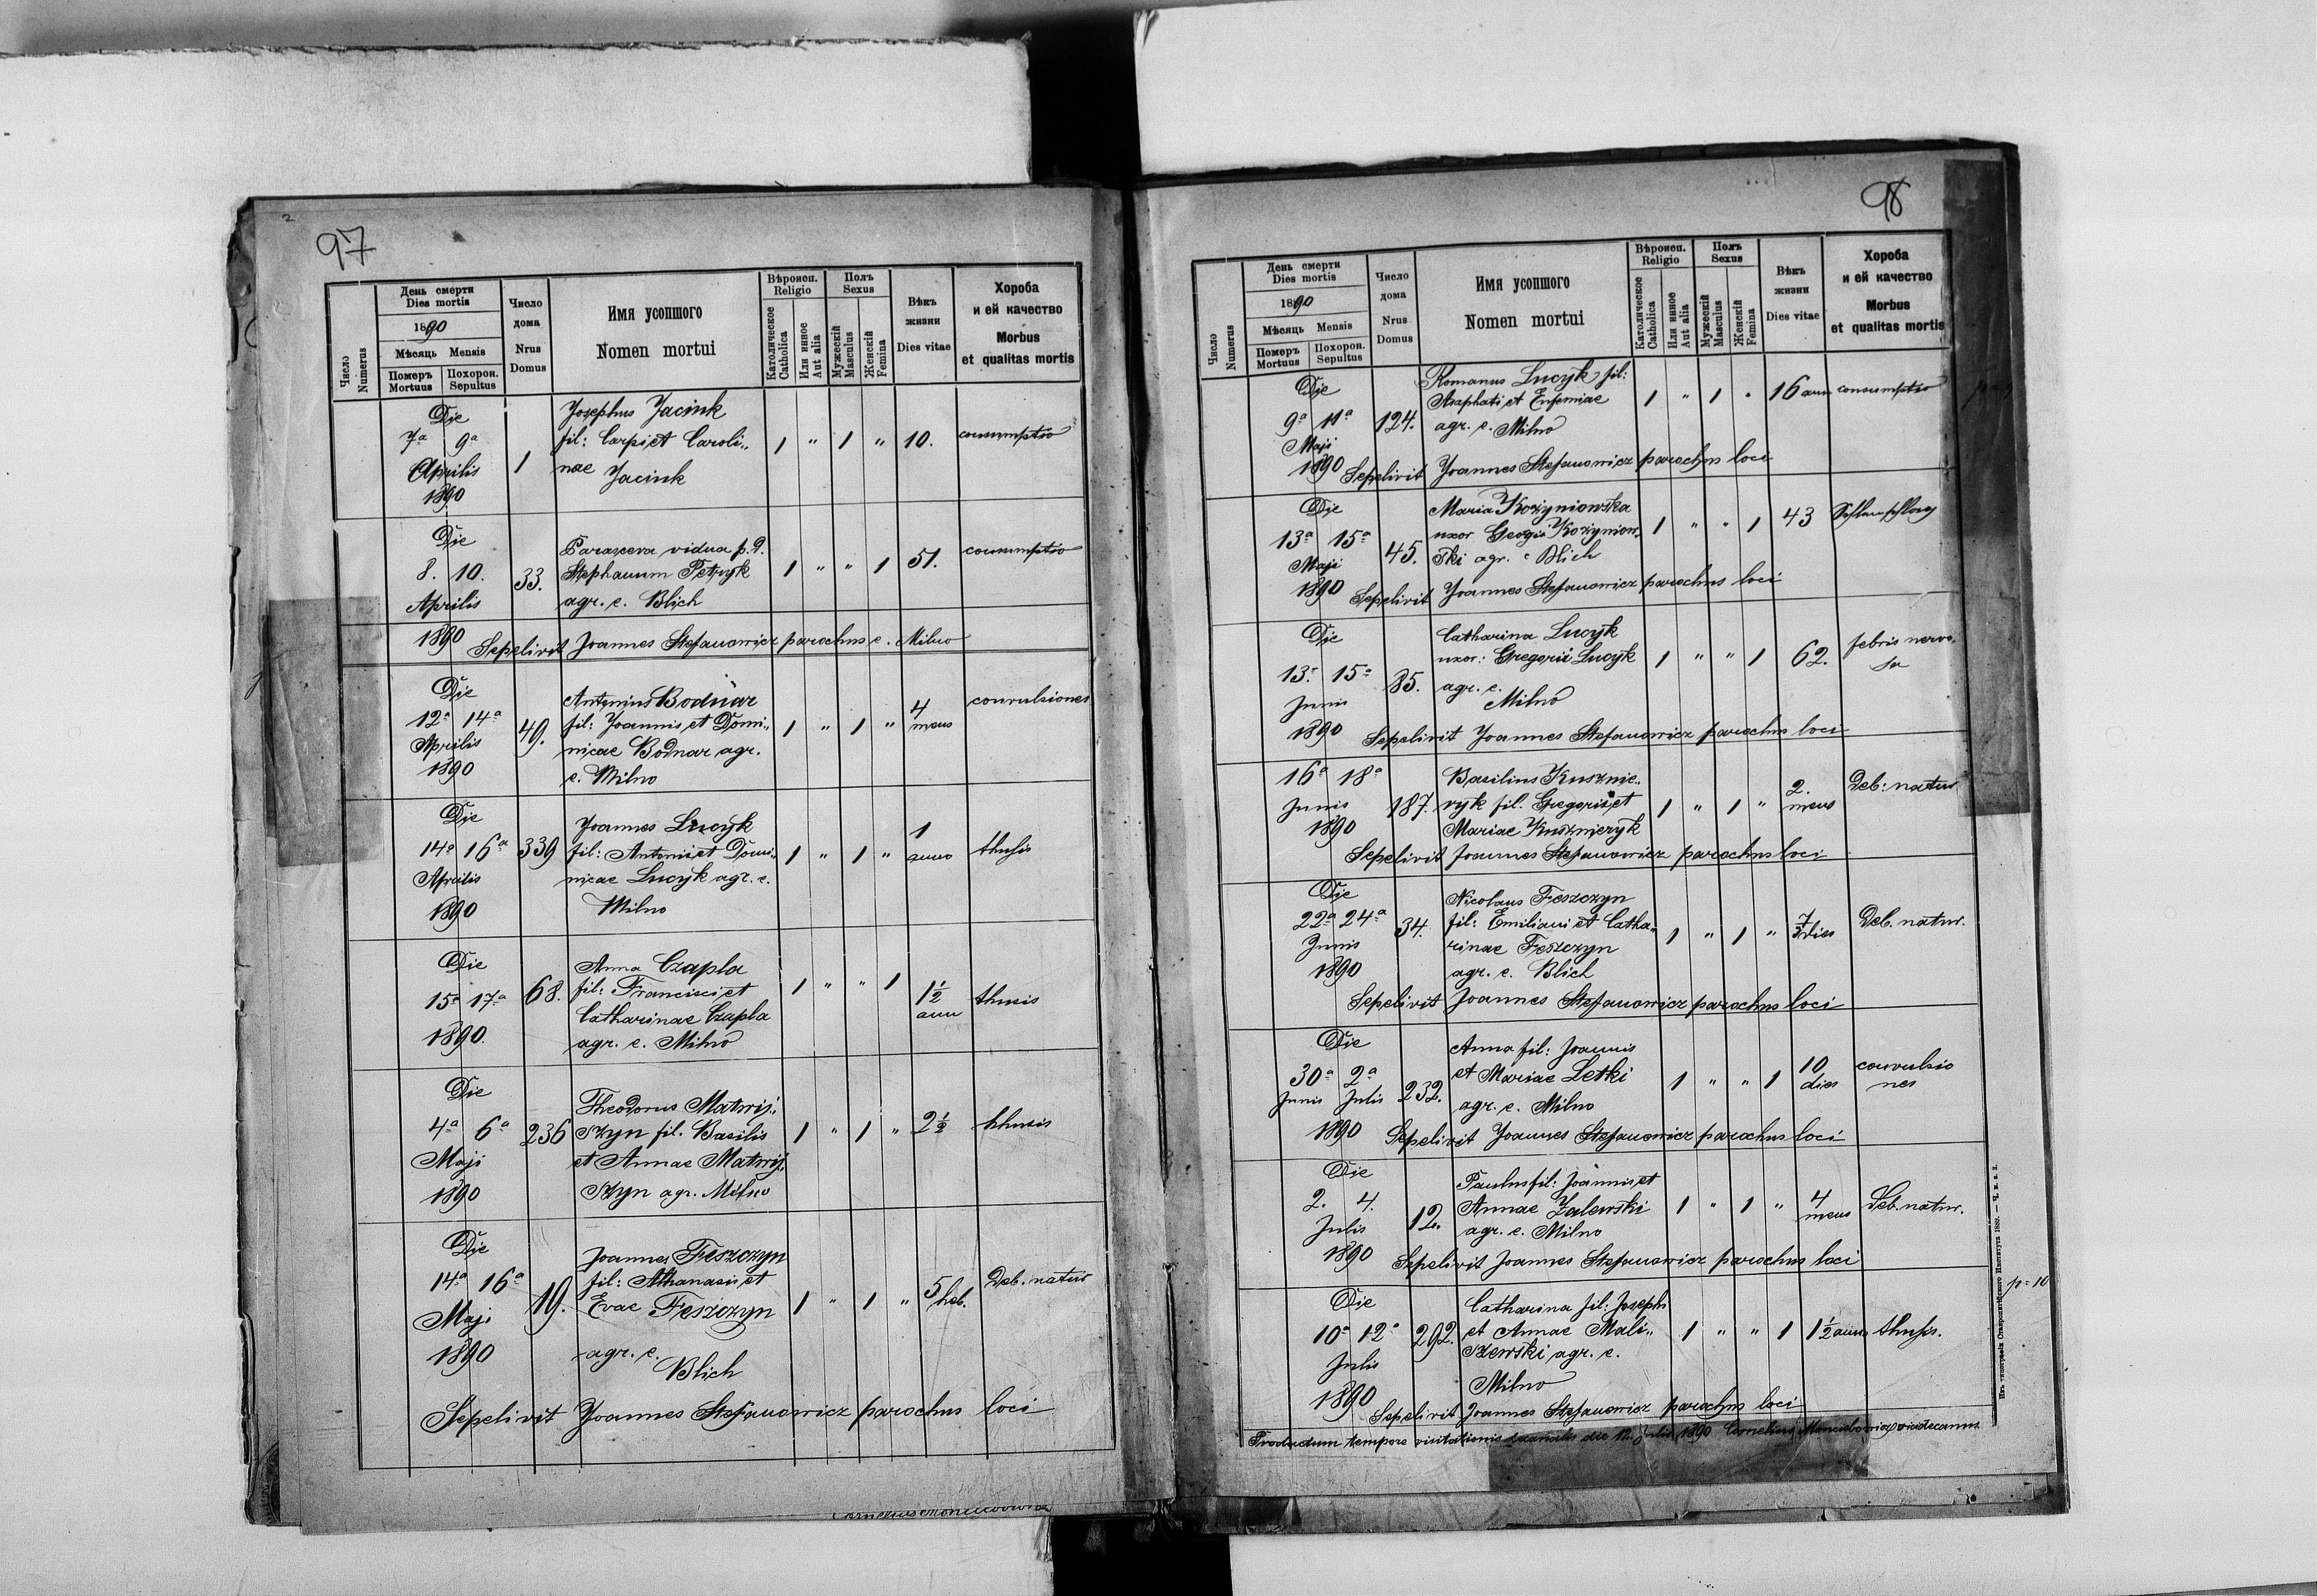 97
Число
Numerus
День смерти
Dies mortis
1890
Мѣсяць Mensis
Померъ
Mortuus
Похорон.
Sepultus
Число
дома
Nrus
Domus
Имя усопшого
Nomen mortui
Вѣроисп.
Religio
Католическое
Catholica
Или инное
Aut alia
Полъ
Sexus
Мужескій
Masculus
Женскій
Femina
Вѣкъ
жизни
Dies vitae
Хороба
и ей качество
Morbus
et qualitas mortis
Die
7ª 9ª
Aprilis
1890
1
Josephus Jacink
fil: Carpi et Caroli„
nae
Jacink
1 " 1 " 10. consumptio
Die
8. 10.
Aprilis
33.
Paraxeva vidua p. d.
Stephanum Petryk
agr. e. Blich
1 " " 1 51. consumptio
1890 Sepelivit Joannes Stefanowicz parochus e. Milno
Die
12ª 14ª
Aprilis
1890
49.
Antonius Bodnar
fil: Joannis et Domi„
nicae Bodnar agr.
e. Milno
1 " 1 " 4
mens
convulsiones
Die
14ª 16ª
Aprilis
1890
339
Joannes Lucyk
fil: Antonii et Domi„
nicae Lucyk agr. e.
Milno
1 " 1 " 1
anno
thusis
Die
15ª 17ª
1890.
68.
Anna Czapla
fil: Francisci et
Catharinae Czapla
agr. e. Milno
1 " " 1 1½
ann
thusis
Die
4ª 6ª
Maji
1890
236
Theodorus Matwij„
szyn fil. Basilis
et Annae Matwij„
szyn agr. Milno
1 " 1 " 2½ thusis
Die
14ª 16ª
Maji
1890
19.
Joannes Feszczyn
fil: Athanasii et
Evae Feszczyn
agr. e.
Blich
1 " 1 " 5
heb.
Deb. natur
Sepelivit Joannes Stefanowicz parochus loci
98
Число
Numerus
День смерти
Dies mortis
1890
Мѣсяць Mensis
Померъ
Mortuus
Похорон.
Sepultus
Число
дома
Nrus
Domus
Имя усопшого
Nomen mortui
Вѣроисп.
Religio
Католическое
Catholica
Или инное
Aut alia
Полъ
Sexus
Мужескій
Masculus
Женскій
Femina
Вѣкъ
жизни
Dies vitae
Хороба
и ей качество
Morbus
et qualitas mortis
Die
9ª 11ª
Maji
124.
Romanus Lucyk fil:
Asaphati et Eufemiae
agr. e. Milno
1 " 1 " 16 ann consumptio
1890 Sepelivit Joannes Stefanowicz parochus loci
Die
13ª 15ª
Maji
45.
Maria Kozyniowska
uxor Georgii Kozyniow„
ski agr. e Blich
1 " " 1 43
1890 Sepelivit Joannes Stefanowicz parochus loci
Die
13ª 15ª
Junis
85.
Catharina Lucyk
uxor: Gregorii Lucyk
agr. e.
Milno
1 " " 1 62. febris nervo„
sa
1890 Sepelivit Joannes Stefanowicz parochus loci
16ª 18ª
Junis
1890
187.
Basilius Kusznie„
ryk fil. Gregorii et
Mariae Kusznieryk
1 " 1 " 2.
mens
Deb: natur
Sepelivit Joannes Stefanowicz parochus loci
Die
22ª 24ª
Junis
1890
34.
Nicolaus Feszczyn
fil: Emiliani et Catha„
rinae Feszczyn
agr. e. Blich
1 " 1 " 7
dies
Deb. natur.
Sepelivit Joannes Stefanowicz parochus loci
Die
30ª 2ª
Junis Julis
232.
Anna fil: Joannis
et Mariae Letki
agr. e. Milno
1 " " 1 10
dies
convulsio
nes
1890 Sepelivit Joannes Stefanowicz parochus loci
Die
2. 4.
Julis
12.
Paulus fil: Joannis et
Annae Zalewski
agr. e. Milno
1 " 1 " 4
mens
Deb. natur.
1890 Sepelivit Joannes Stefanowicz parochus loci
Die
10ª 12ª
Julis
292.
Catharina fil: Josephi
et Annae Mali„
szewski agr. e.
Milno
1 " " 1 1½ ann thusis.
1890 Sepelivit Joannes Stefanowicz parochus loci
Productum tempore visitationis decanalis die 12 Julii 1890 Cornelius vicedecanus.
p=10
Изъ типографіи Ставропигійского Института